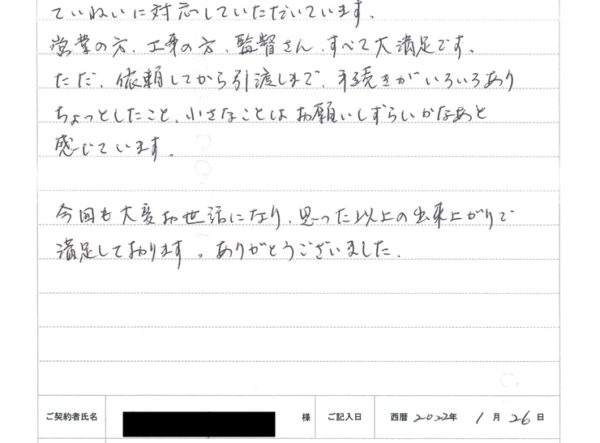 ていねいに対応していただいています。
営業の方、工事の方、監督さん、すべて大満足です。
ただ、依頼してから引渡しまで、手続きがいろいろあり
ちょっとしたこと、小さなことはお願いしずらいかなあと
感じています。
今回も大変お世話になり、思った以上の出来上がりで
満足しております。ありがとうございました。
ご契約者氏名 様 ご記入日 西暦 2022年 1月 26日